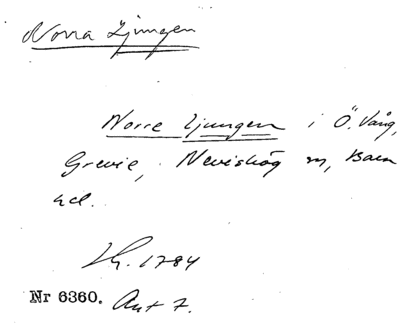 Norra Ljungen
Norre Ljungen i Ö. Vång,
Grevie, Nevishög m, Bara
hd.
Lh. 1784
Nr 6360. Akt 7.